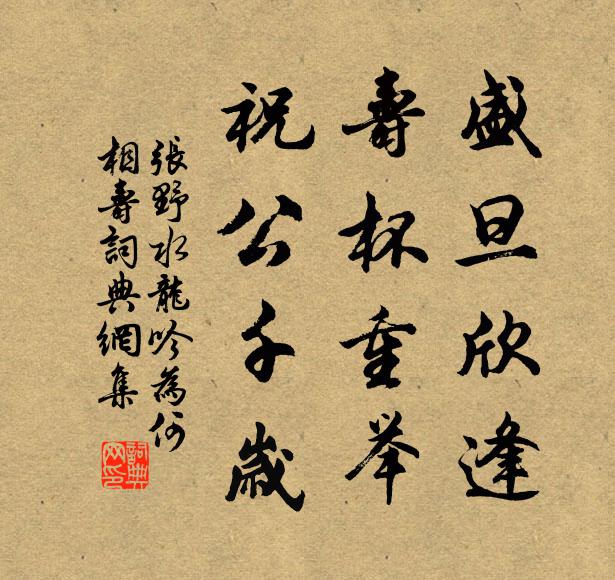 盛旦欣逢
壽杯重举
祝公千歲
張野水龍吟為何
相壽詞典網集
詞典
网印